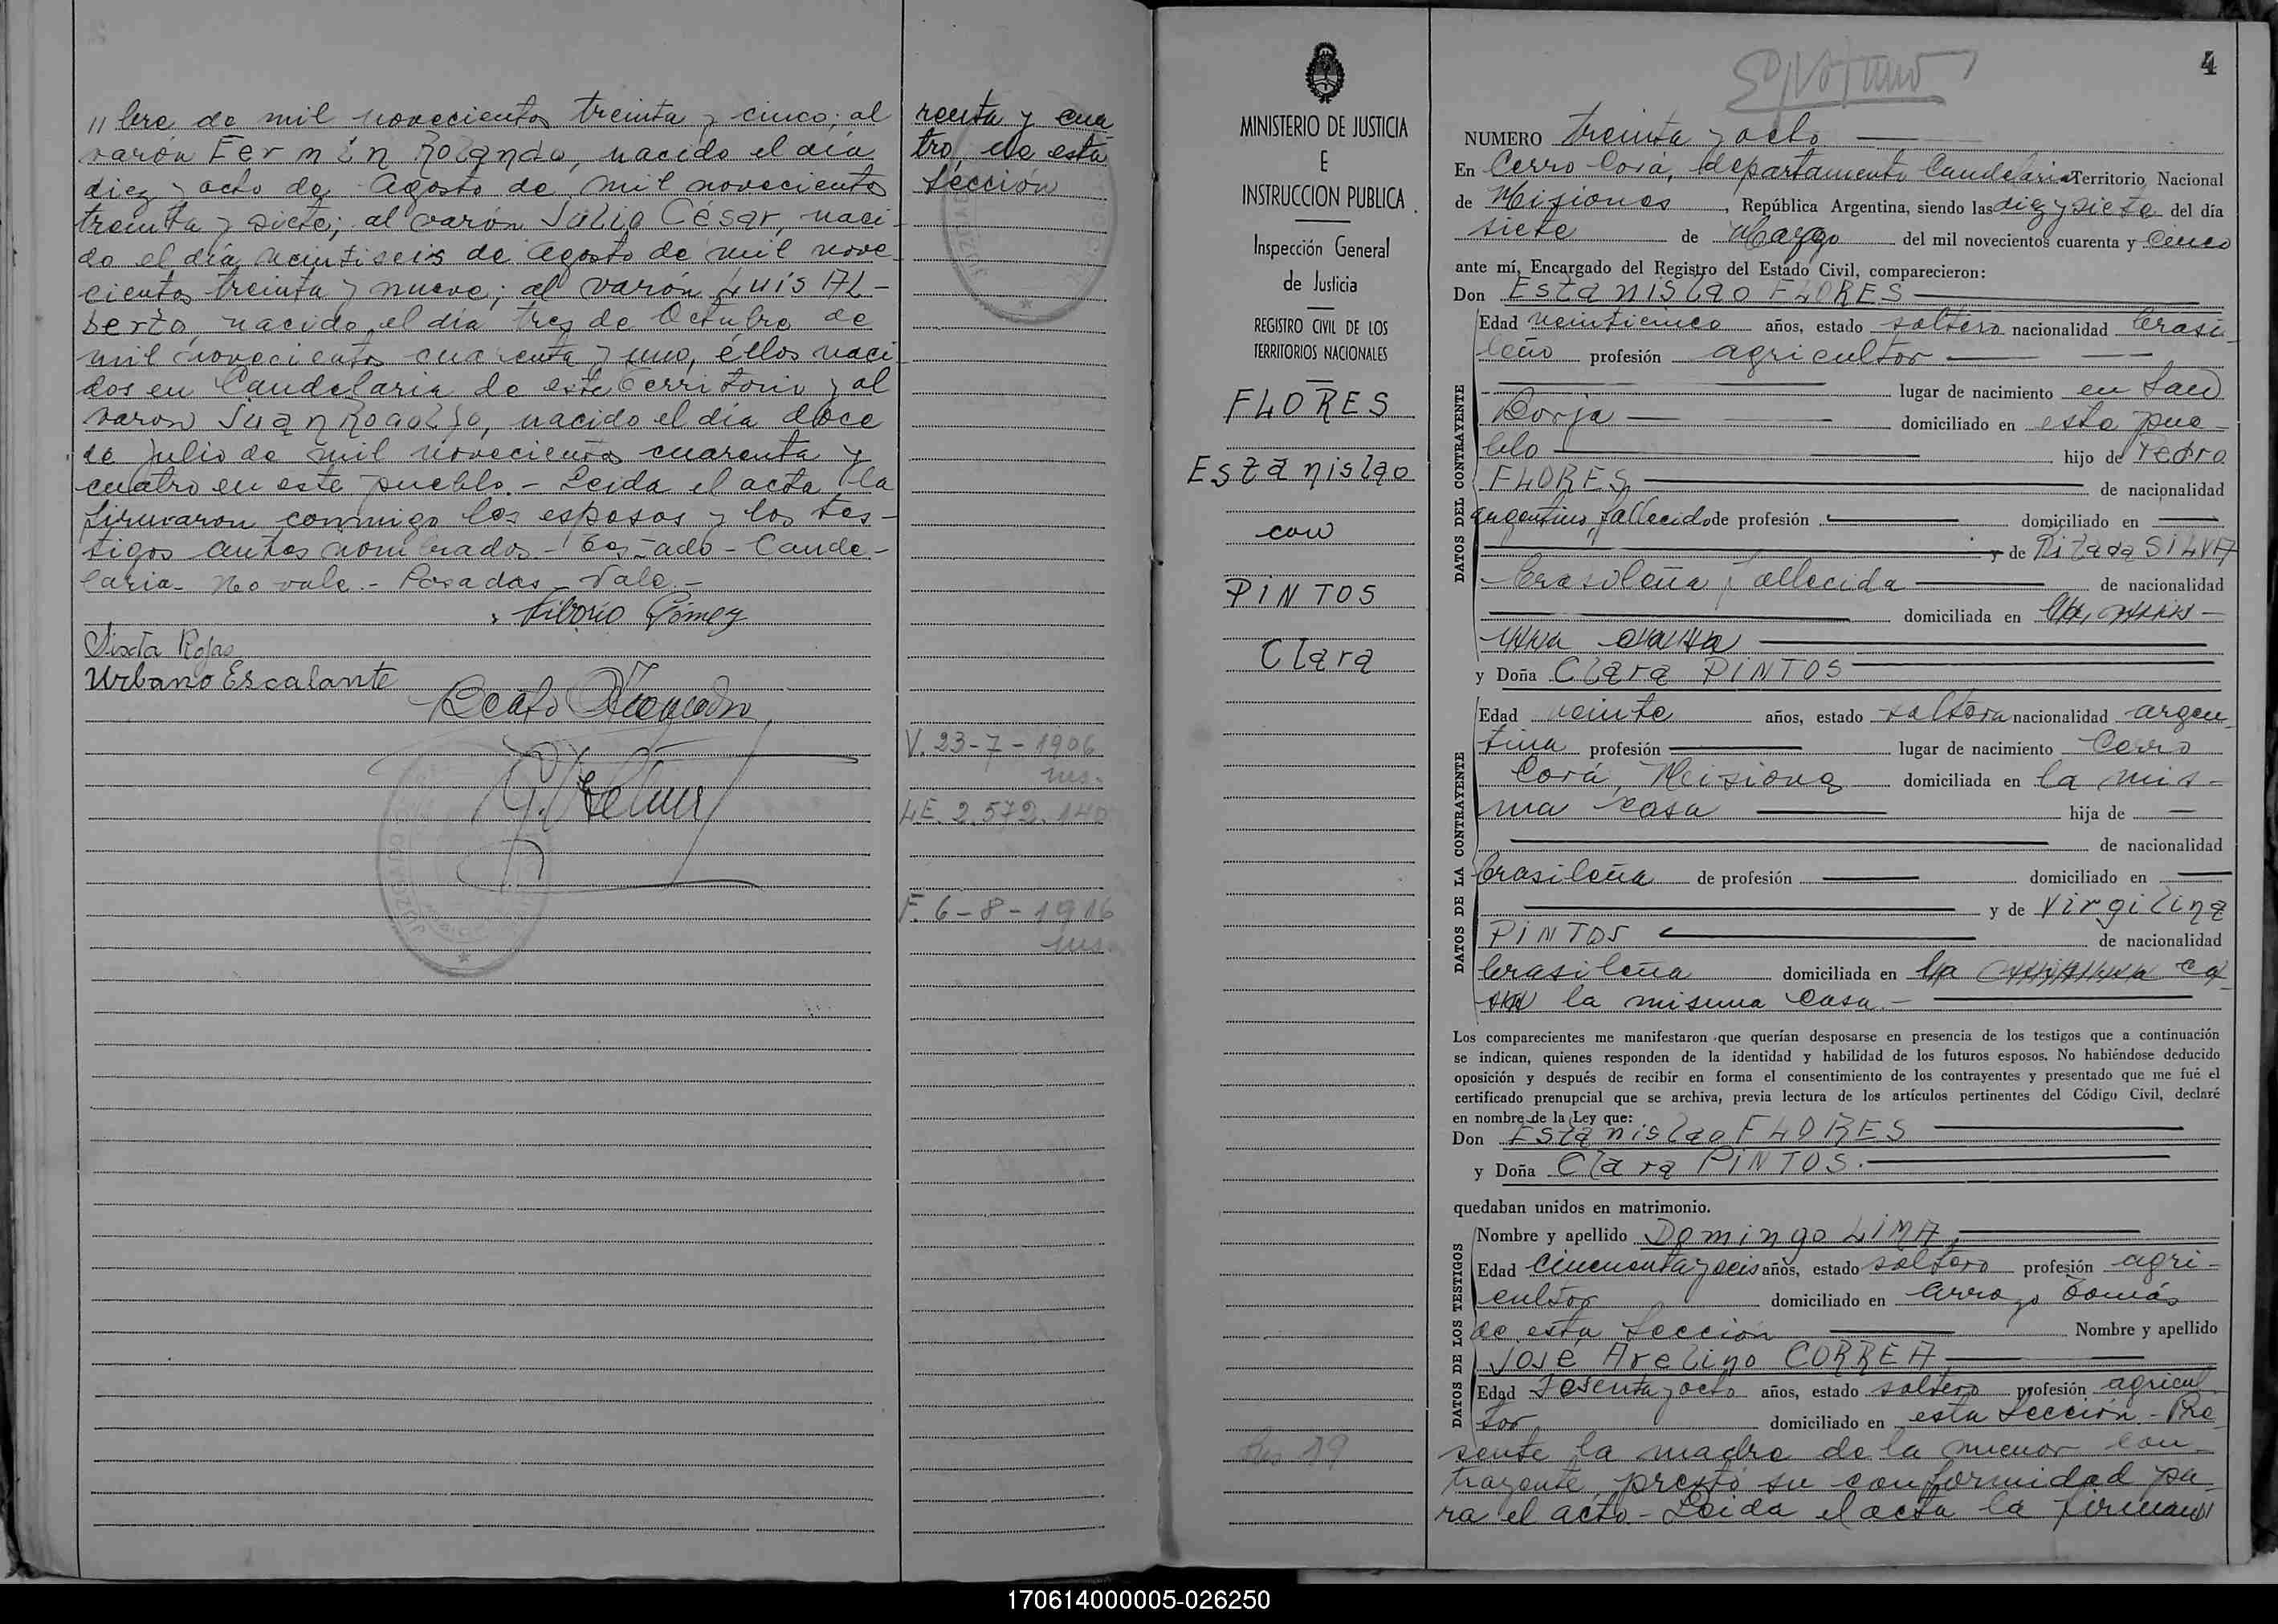 // bre de mil novecientos treinta y cinco; al
varón Fermín Rolando, nacido el día
diez y ocho de Agosto de mil novecientos
treinta y siete; al varón Julio César, naci-
do el día veintiseis de Agosto de mil nove-
cientos treinta y nueve; al varón Luis Al-
berto, nacido el día tres de Octubre de
mil novecientos cuarenta y uno, éllos naci-
dos en Candelaria de este Territorio y al
varon Juan Rodolfo, nacido el día doce
de Julio de mil novecientos cuarenta y
cuatro en este pueblo.- Leida el acta la
firmaron conmigo los esposos y los tes-
tigos antes nombrados - Testado - Cande-
laria - No vale.- Posadas - Vale.-
Liborio Gómez
Sixta Rojas
Urbano Escalante
renta y cua
tro, de esta
Sección
V. 23-7-1906
L.E. 2.572.140
F. 6-8-1916
MINISTERIO DE JUSTICIA
E
INSTRUCCION PUBLICA
Inspección General
de Justicia
REGISTRO CIVIL DE LOS
TERRITORIOS NACIONALES
FLORES
Estanislao
con
PINTOS
Clara
4
NUMERO treinta y ocho
En Cerro Corá, departamento Candelaria Territorio Nacional
de Misiones, República Argentina, siendo las diez y siete del día
siete de Marzo del mil novecientos cuarenta y cinco
ante mí, Encargado del Registro del Estado Civil, comparecieron:
Don Estanislao FLORES
DATOS DEL CONTRAYENTE
Edad veinticinco años, estado soltero nacionalidad brasi-
leño profesión agricultor
lugar de nacimiento en San
Borja domiciliado en este pue-
blo hijo de Pedro
FLORES de nacionalidad
argentino, fallecido de profesión domiciliado en
y de SILVA
brasileña, fallecida de nacionalidad
domiciliada en la mis-
ma casa
y Doña Clara PINTOS
DATOS DE LA CONTRAYENTE
Edad veinte años, estado soltera nacionalidad argen-
tina profesión lugar de nacimiento Cerro
Corá, Misiones domiciliada en la mis-
ma casa hija de
de nacionalidad
brasileña de profesión domiciliado en
y de Virgilina
PINTOS de nacionalidad
brasileña domiciliada en la misma ca-
sa la misma casa.-
Los comparecientes me manifestaron que querían desposarse en presencia de los testigos que a continuación
se indican, quienes responden de la identidad y habilidad de los futuros esposos. No habiéndose deducido
oposición y después de recibir en forma el consentimiento de los contrayentes y presentado que me fué el
certificado prenupcial que se archiva, previa lectura de los artículos pertinentes del Código Civil, declaré
en nombre de la Ley que:
Don Estanislao FLORES
y Doña Clara PINTOS.
quedaban unidos en matrimonio.
DATOS DE LOS TESTIGOS
Nombre y apellido Domingo LIMA,
Edad cincuenta y seis años, estado soltero profesión agri-
cultor domiciliado en Arroyo Tomás
de esta Sección Nombre y apellido
José Avelino CORREA
Edad sesenta y ocho años, estado soltero profesión agricul-
tor domiciliado en esta Sección.- Pre
sente la madre de la menor con-
trayente, prestó su conformidad pa-
ra el acto.- Leida el acta la firman
170614000005-026250